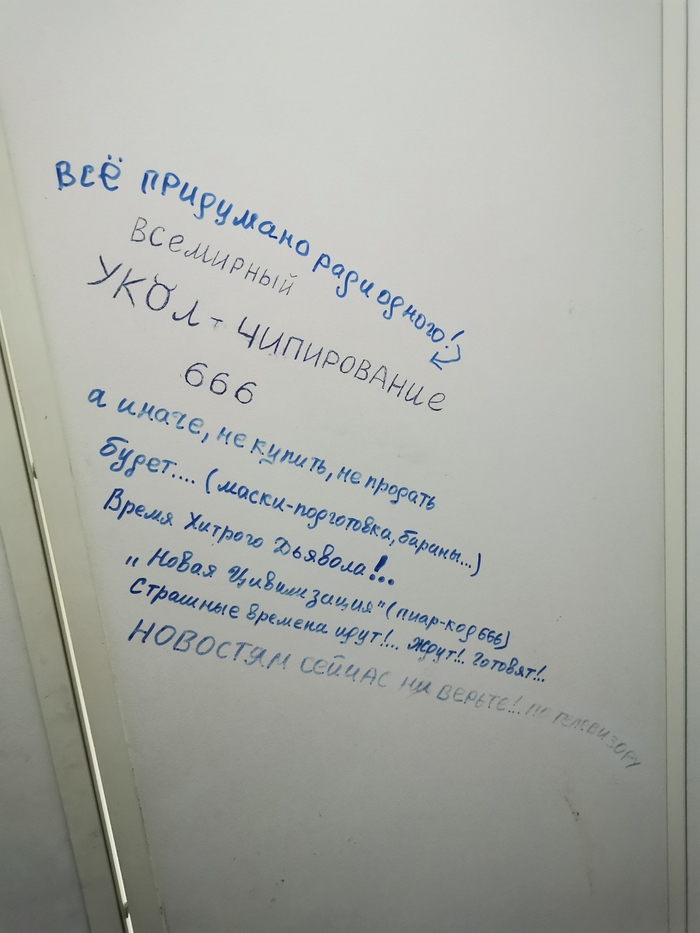 Всё придумано ради одного!
Всемирный
УКОЛ - ЧИПИРОВАНИЕ
666
а иначе, не купить, не продать
будет.... (маски-подготовка, бараны...)
Время Хитрого Дьявола!..
„Новая Цивилизация" (пиар-код 666)
Страшные времена идут!.. Ждут!.. Готовят!..
НОВОСТЯМ СЕЙЧАС НИ ВЕРЬТЕ!.. ПО ТЕЛЕВИЗОРУ